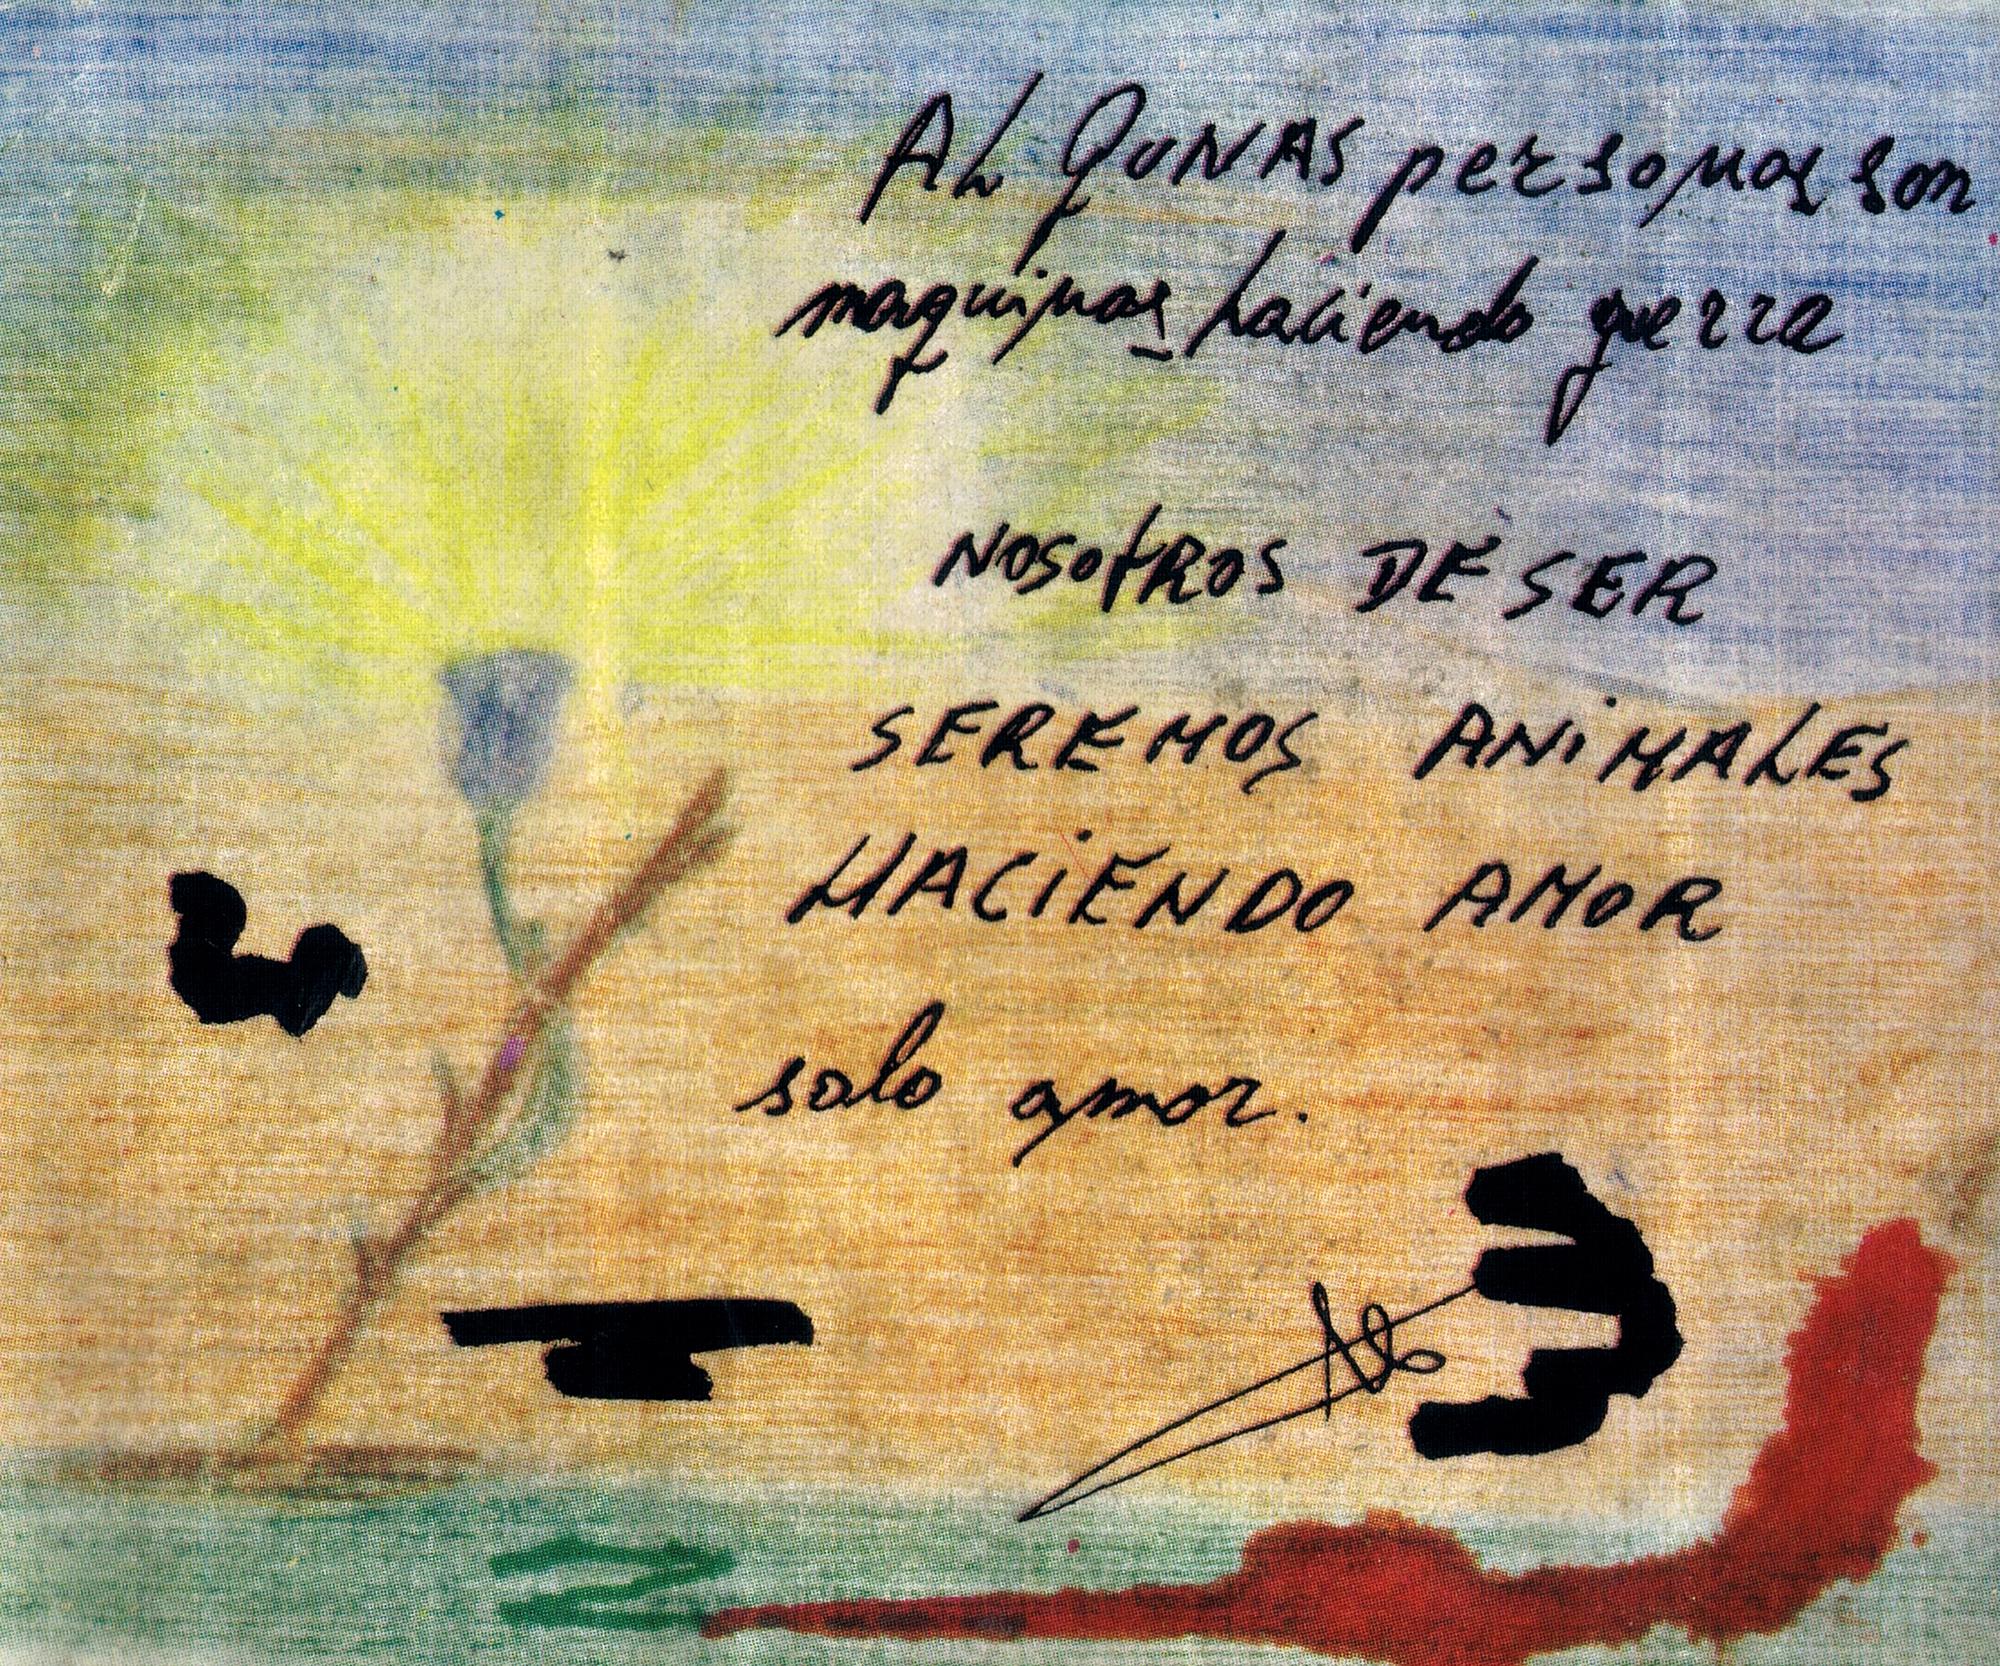 ALGUNAS personas son
maquinas haciendo guerra
NOSOTROS DE SER
SEREMOS ANiMALES
HACiENDO AMOR
solo amor.